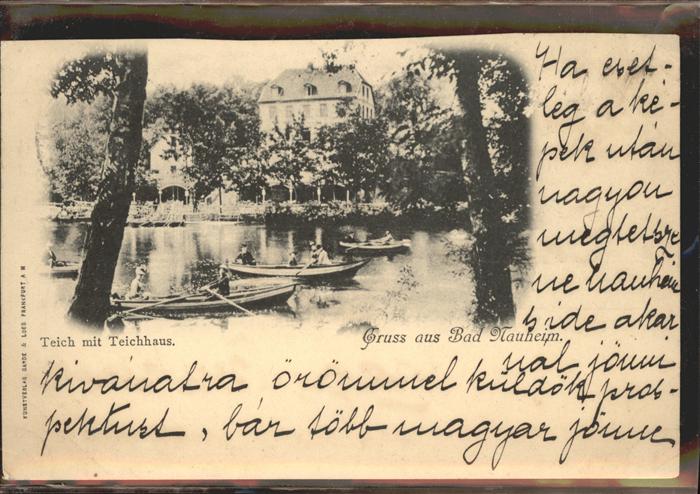 Ha eset-
leg a ké-
pek után
nagyon
megtetsze-
ne Nauheim
s ide akar
nal jönni
kivánatra örömmel küldök pros-
pektust, bár több magyar jönne
Teich mit Teichhaus.
Gruss aus Bad Nauheim.
KUNSTVERLAG GARDE & LUES FRANKFURT A M